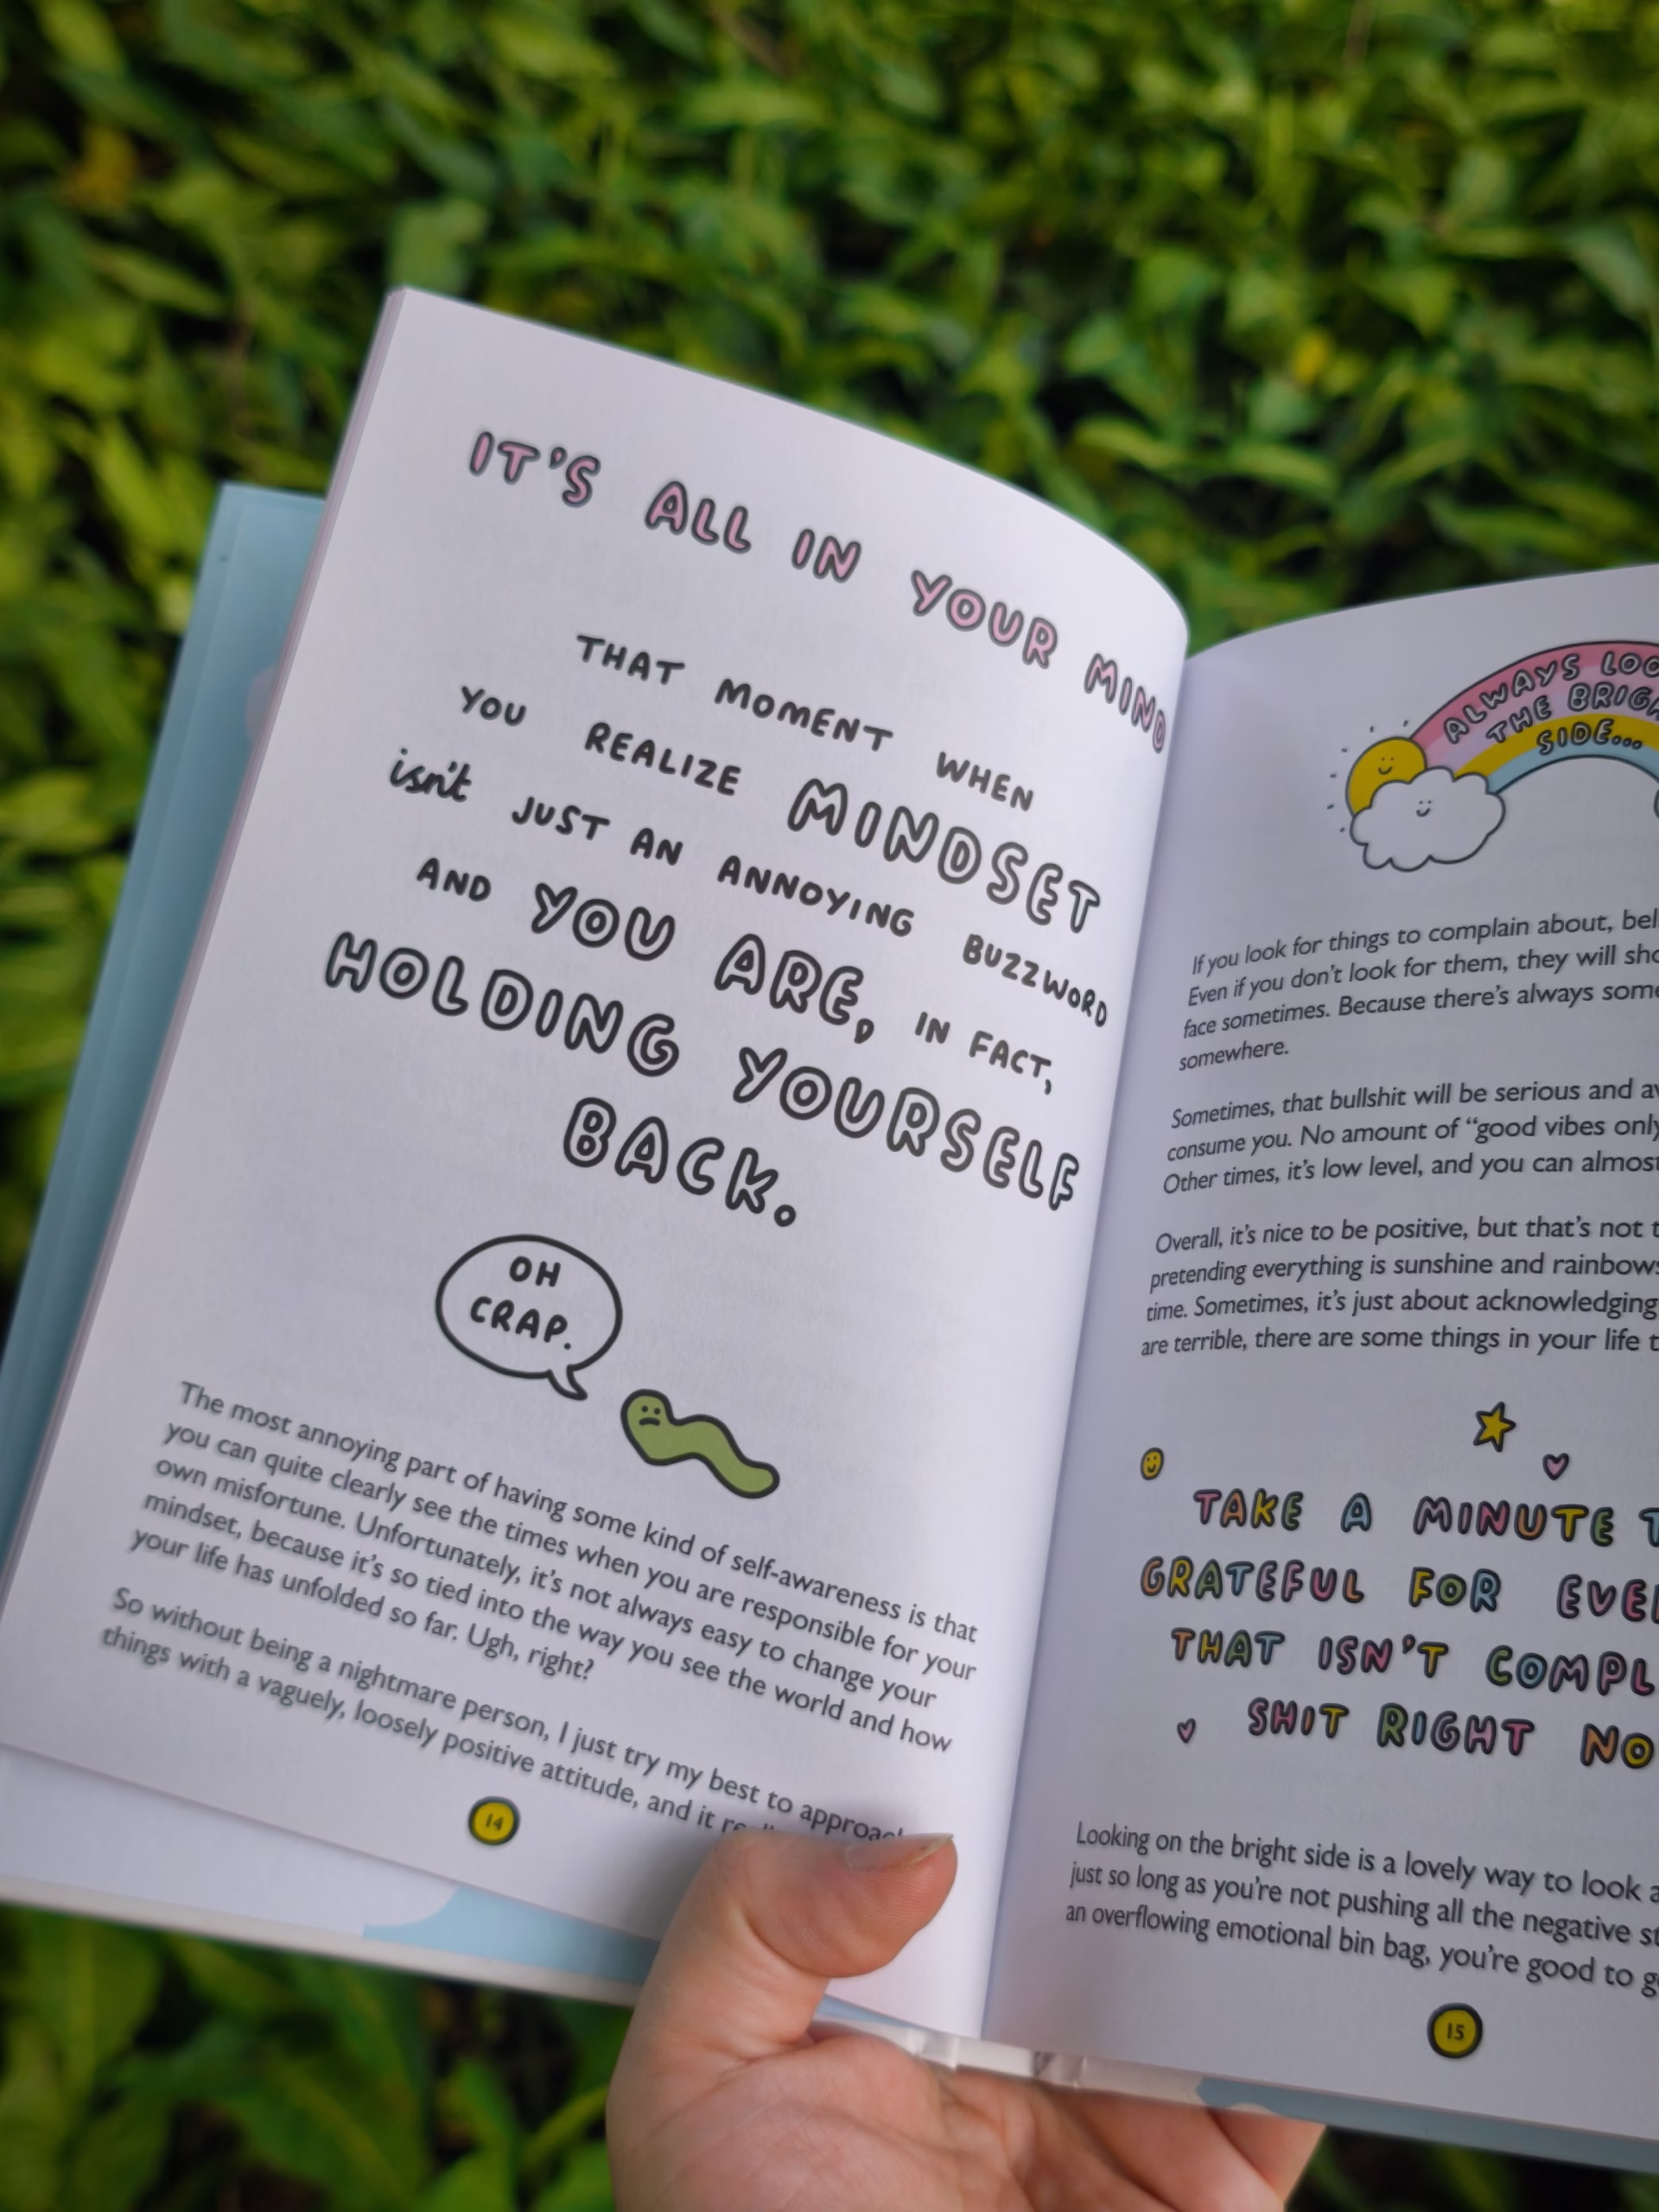 IT'S ALL IN YOUR MIND
THAT MOMENT WHEN
YOU REALIZE MINDSET
isn't JUST AN ANNOYING BUZZWORD
AND YOU ARE, IN FACT,
HOLDING YOURSELF
BACK.
OH
CRAP.
The most annoying part of having some kind of self-awareness is that
you can quite clearly see the times when you are responsible for your
own misfortune. Unfortunately, it's not always easy to change your
mindset, because it's so tied into the way you see the world and how
your life has unfolded so far. Ugh, right?
So without being a nightmare person, I just try my best to
things with a vaguely, loosely positive attitude, and it
14
ALWAYS
THE
SIDE...
If you look for things to complain about,
Even if you don't look for them, they will
face sometimes. Because there's always
somewhere.
Sometimes, that bullshit will be serious and
consume you. No amount of “good vibes only
Other times, it's low level, and you can almost
Overall, it's nice to be positive, but that's not
pretending everything is sunshine and rainbows
time. Sometimes, it's just about acknowledging
are terrible, there are some things in your life
TAKE A MINUTE
GRATEFUL FOR
THAT ISN'T
SHIT RIGHT
Looking on the bright side is a lovely way to look
just so long as you're not pushing all the negative
an overflowing emotional bin bag, you're good to
15